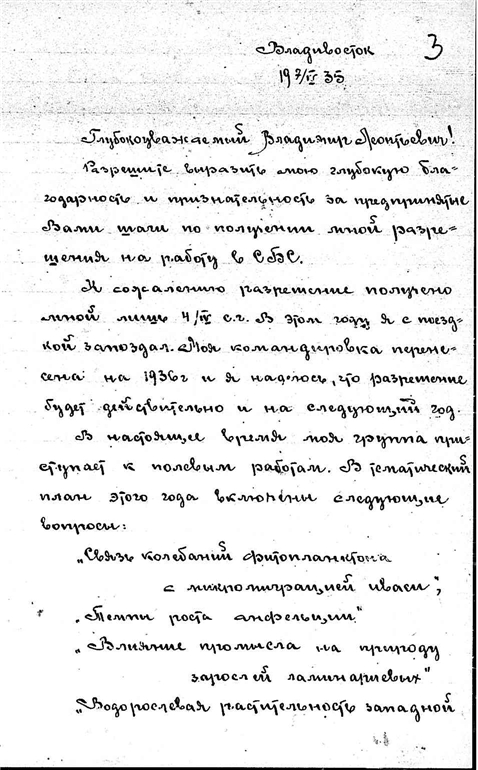 Владивосток
3
19 7/IV 35
Глубокоуважаемый Владимир Леонтьевич!
Разрешите выразить мою глубокую бла-
годарность и признательность за предпринятые
Вами шаги по получении мной разре-
шения на работу в СБС.
К сожалению разрешение получено
мной лишь 4/IV с.г. В этом году я с поезд-
кой запоздал. Моя командировка перене-
сена на 1936г и я надеюсь, что разрешение
будет действительно и на следующий год.
В настоящее время моя группа при-
ступает к полевым работам. В тематический
план этого года включены следующие
вопросы:
„Связь колебаний фитопланктона
с микромиграцией иваси";
„Темпы роста анфельции"
„Влияние промысла на природу
зарослей ламинариевых"
„Водорослевая растительность западной